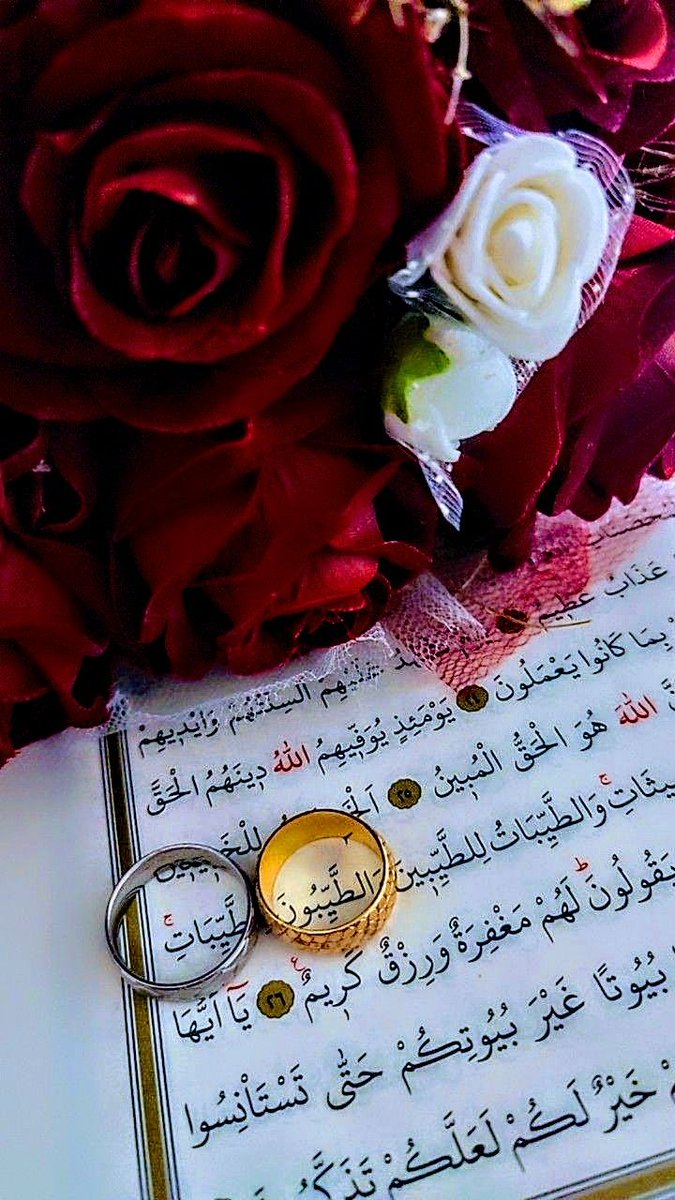 عَذَابٌ عَظ۪يمٌ
عَلَيْهِمْ اَلْسِنَتُهُمْ وَاَيْد۪يهِمْ
بِمَا كَانُوا يَعْمَلُونَ ﴿٢٤﴾ يَوْمَئِذٍ يُوَفّ۪يهِمُ اللّٰهُ د۪ينَهُمُ الْحَقَّ
اللّٰهَ هُوَ الْحَقُّ الْمُب۪ينُ ﴿٢٥﴾
وَالطَّيِّبَاتُ لِلطَّيِّب۪ينَ وَالطَّيِّبُونَ لِلطَّيِّبَاتِۚ
يَقُولُونَۜ لَهُمْ مَغْفِرَةٌ وَرِزْقٌ كَر۪يمٌ۟ ﴿٢٦﴾ يَٓا اَيُّهَا
بُيُوتًا غَيْرَ بُيُوتِكُمْ حَتّٰى تَسْتَأْنِسُوا
خَيْرٌ لَكُمْ لَعَلَّكُمْ تَذَكَّرُونَ